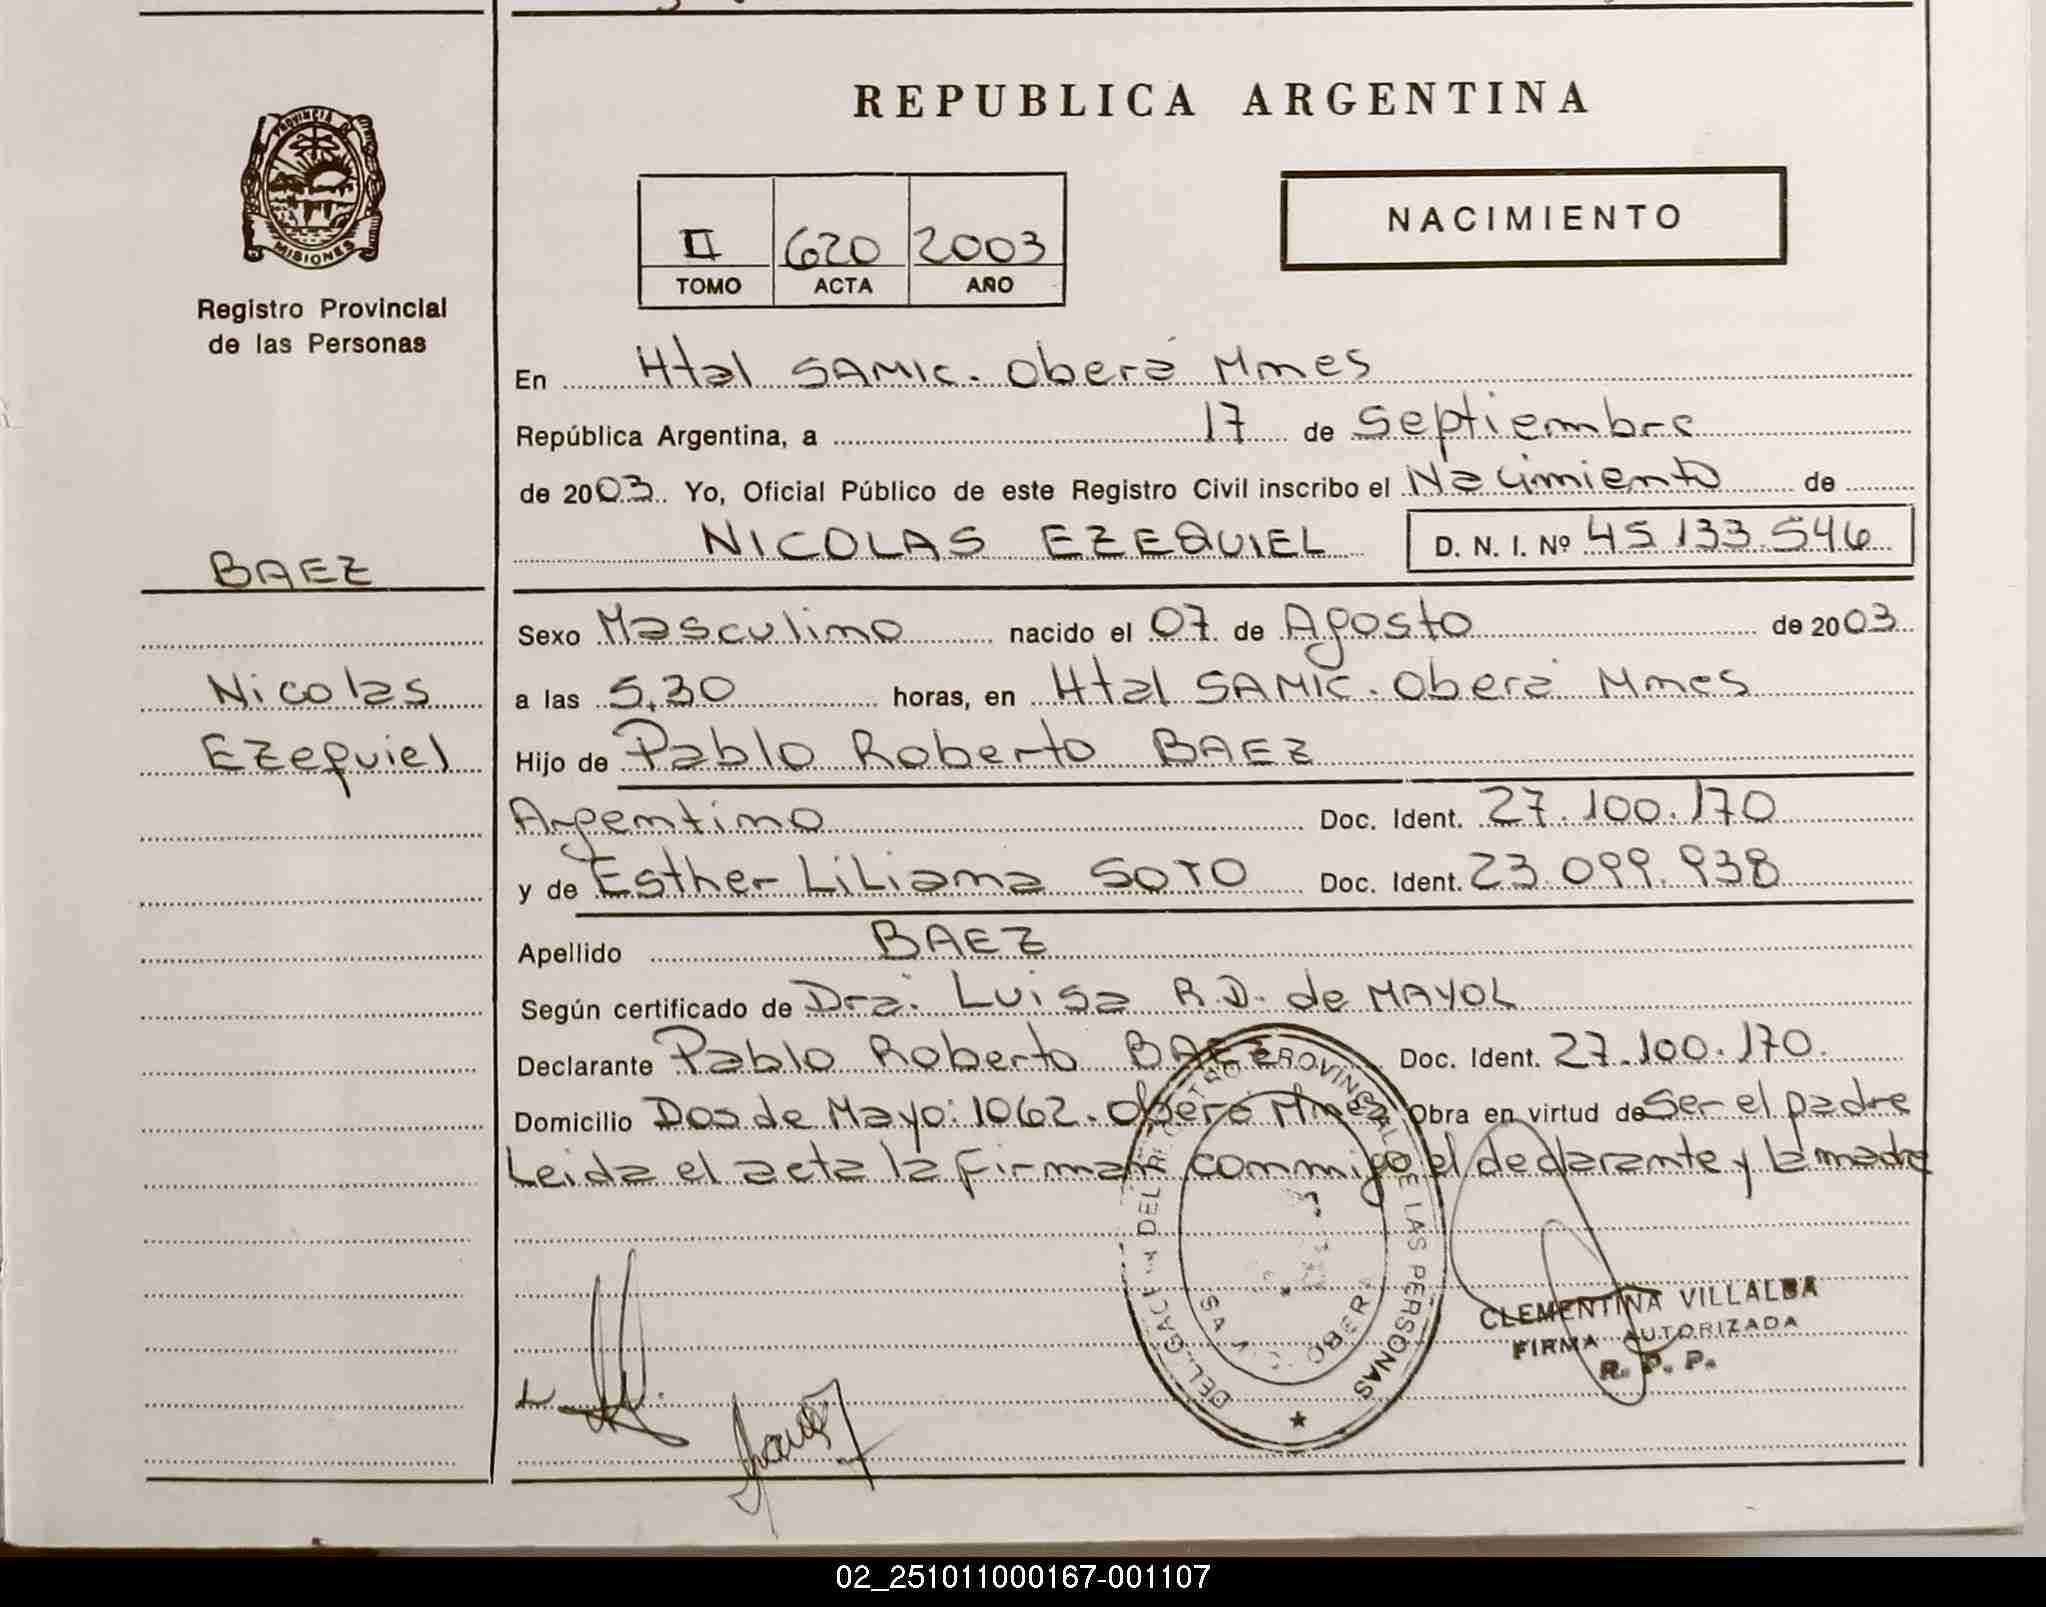 REPUBLICA ARGENTINA
PROVINCIA DE
MISIONES
Registro Provincial
de las Personas
II 620 2003
TOMO ACTA AÑO
NACIMIENTO
En Htal SAMIC. Oberá Mnes
República Argentina, a 17 de Septiembre
de 2003 Yo, Oficial Público de este Registro Civil inscribo el Nacimiento de
NICOLAS EZEQUIEL D. N. I. Nº 45.133.546
BAEZ
Sexo Masculino nacido el 07 de Agosto de 2003
Nicolas
a las 5,30 horas, en Htal SAMIC. Oberá Mnes
Ezequiel
Hijo de Pablo Roberto BAEZ
Argentino Doc. Ident. 27.100.170
y de Esther Liliana SOTO Doc. Ident. 23.099.938
Apellido BAEZ
Según certificado de Dra. Luisa R.D. de MAYOL
Declarante Pablo Roberto BAEZ Doc. Ident. 27.100.170.
Domicilio Dos de Mayo: 1062. Oberá Mnes Obra en virtud de Ser el padre
Leida el acta la firman conmigo el declarante y la madre
PROVINCIAL DE LAS PERSONAS
CLEMENTINA VILLALBA
FIRMA AUTORIZADA
R. P. P.
02_251011000167-001107